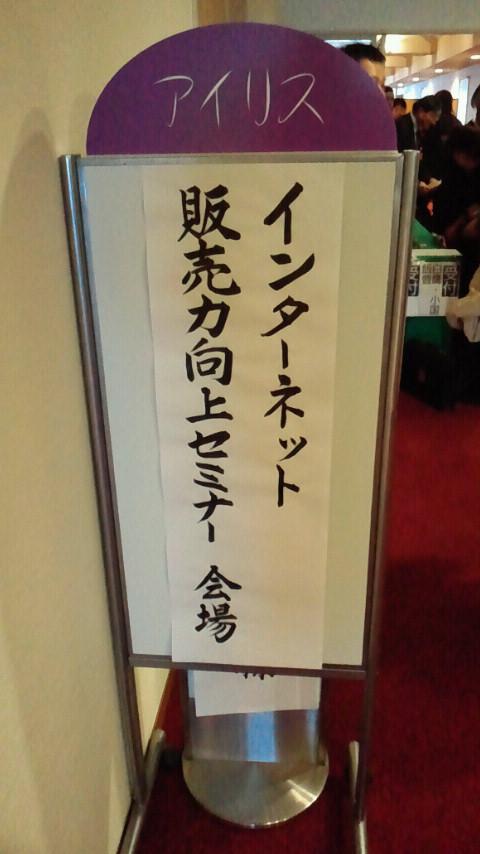 アイリス
インターネット
販売力向上セミナー 会場
受付
受付